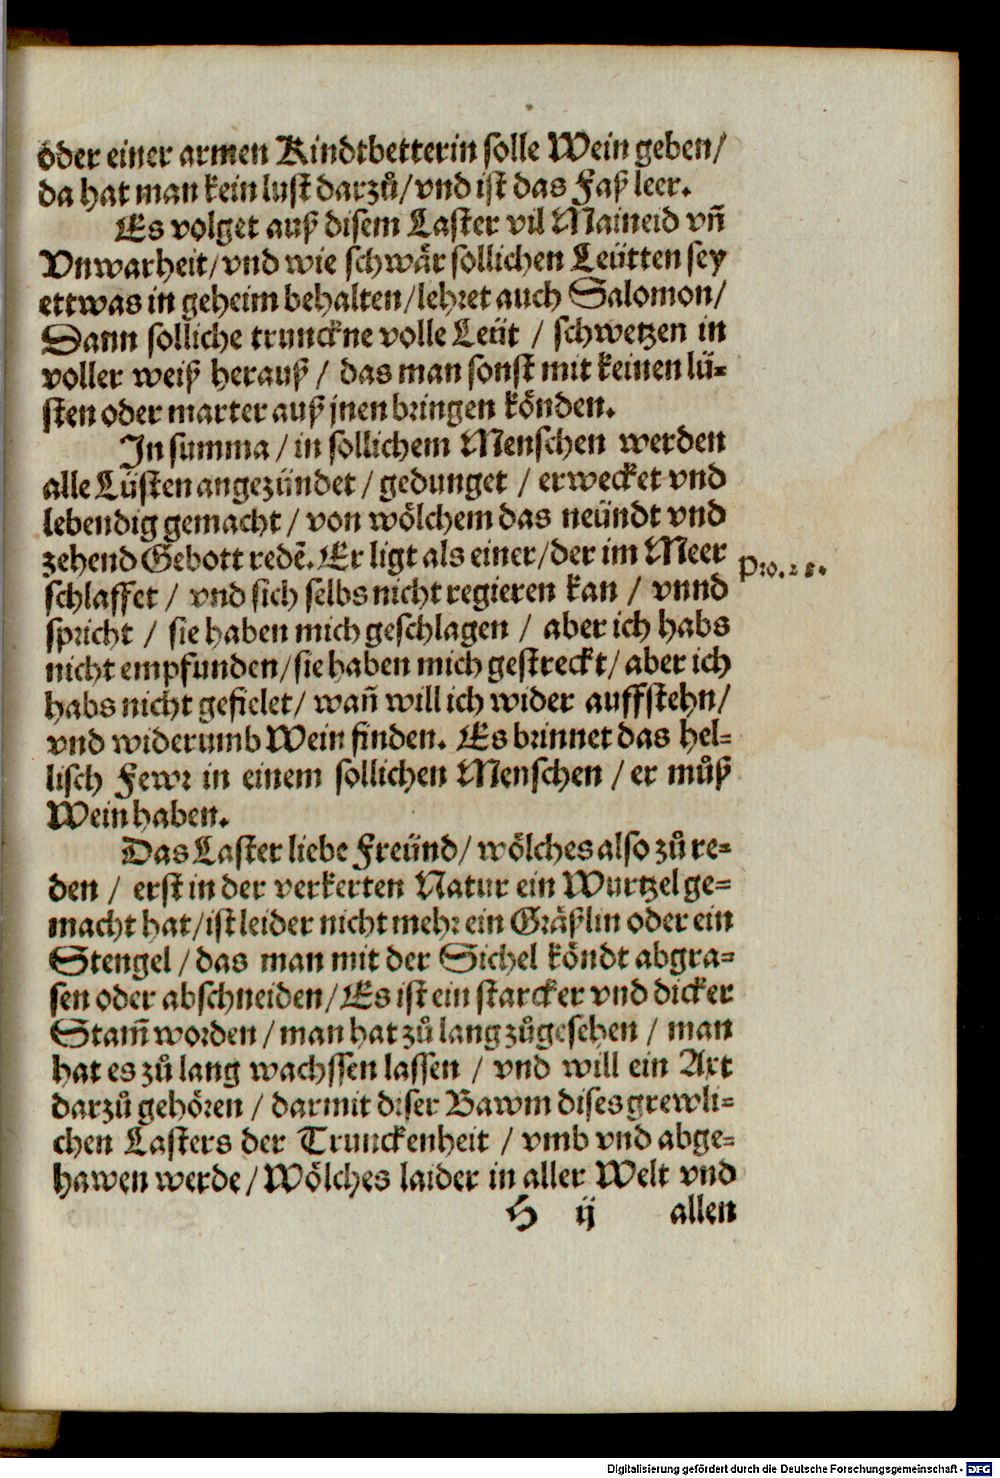 oder einer armen Kindtbetterin solle Wein geben/
da hat man kein lust darzů/vnd ist das Faß leer.
Es volget auß disem Laster vil Maineid vñ
Vnwarheit/vnd wie schwär sollichen Leütten sey
ettwas in geheim behalten/lehret auch Salomon/
Dann solliche trunckne volle Leüt / schwetzen in
voller weiß herauß / das man sonst mit keinen lü-
sten oder marter auß jnen bringen könden.
In summa / in sollichem Menschen werden
alle Lüsten angezündet / gedunget / erwecket vnd
lebendig gemacht / von wölchem das neündt vnd
zehend Gebott redẽ. Er ligt als einer/der im Meer
Pro. 23.
schlaffet / vnd sich selbs nicht regieren kan / vnnd
spricht / sie haben mich geschlagen / aber ich habs
nicht empfunden/sie haben mich gestreckt/aber ich
habs nicht gefielet/ wañ will ich wider auffstehn/
vnd widerumb Wein finden. Es brinnet das hel-
lisch Fewr in einem sollichen Menschen / er můß
Wein haben.
Das Laster liebe Freünd/ wölches also zů re-
den / erst in der verkerten Natur ein Wurtzel ge-
macht hat/ist leider nicht mehr ein Gräßlin oder ein
Stengel / das man mit der Sichel köndt abgra-
sen oder abschneiden/Es ist ein starcker vnd dicker
Stam̃ worden / man hat zů lang zůgesehen / man
hat es zů lang wachssen lassen / vnd will ein Axt
darzů gehören / darmit diser Bawm dises grewli-
chen Lasters der Trunckenheit / vmb vnd abge-
hawen werde/Wölches laider in aller Welt vnd
H ij allen
Digitalisierung gefördert durch die Deutsche Forschungsgemeinschaft - DFG